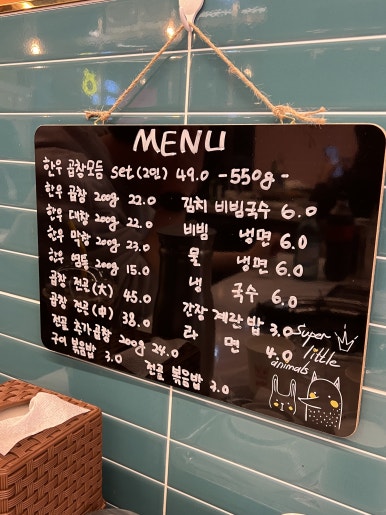 MENU
한우 곱창모듬 set (2인) 49.0 -550g-
한우 곱창 200g 22.0
한우 대창 200g 22.0
한우 막창 200g 23.0
한우 염통 200g 15.0
곱창 전골 (大) 45.0
곱창 전골 (中) 38.0
전골 추가곱창 200g 24.0
구이 볶음밥 3.0
김치 비빔국수 6.0
비빔 냉면 6.0
물 냉면 6.0
냉 국수 6.0
간장 계란밥 3.0
라면 4.0
전골 볶음밥 3.0
Super
little
animals